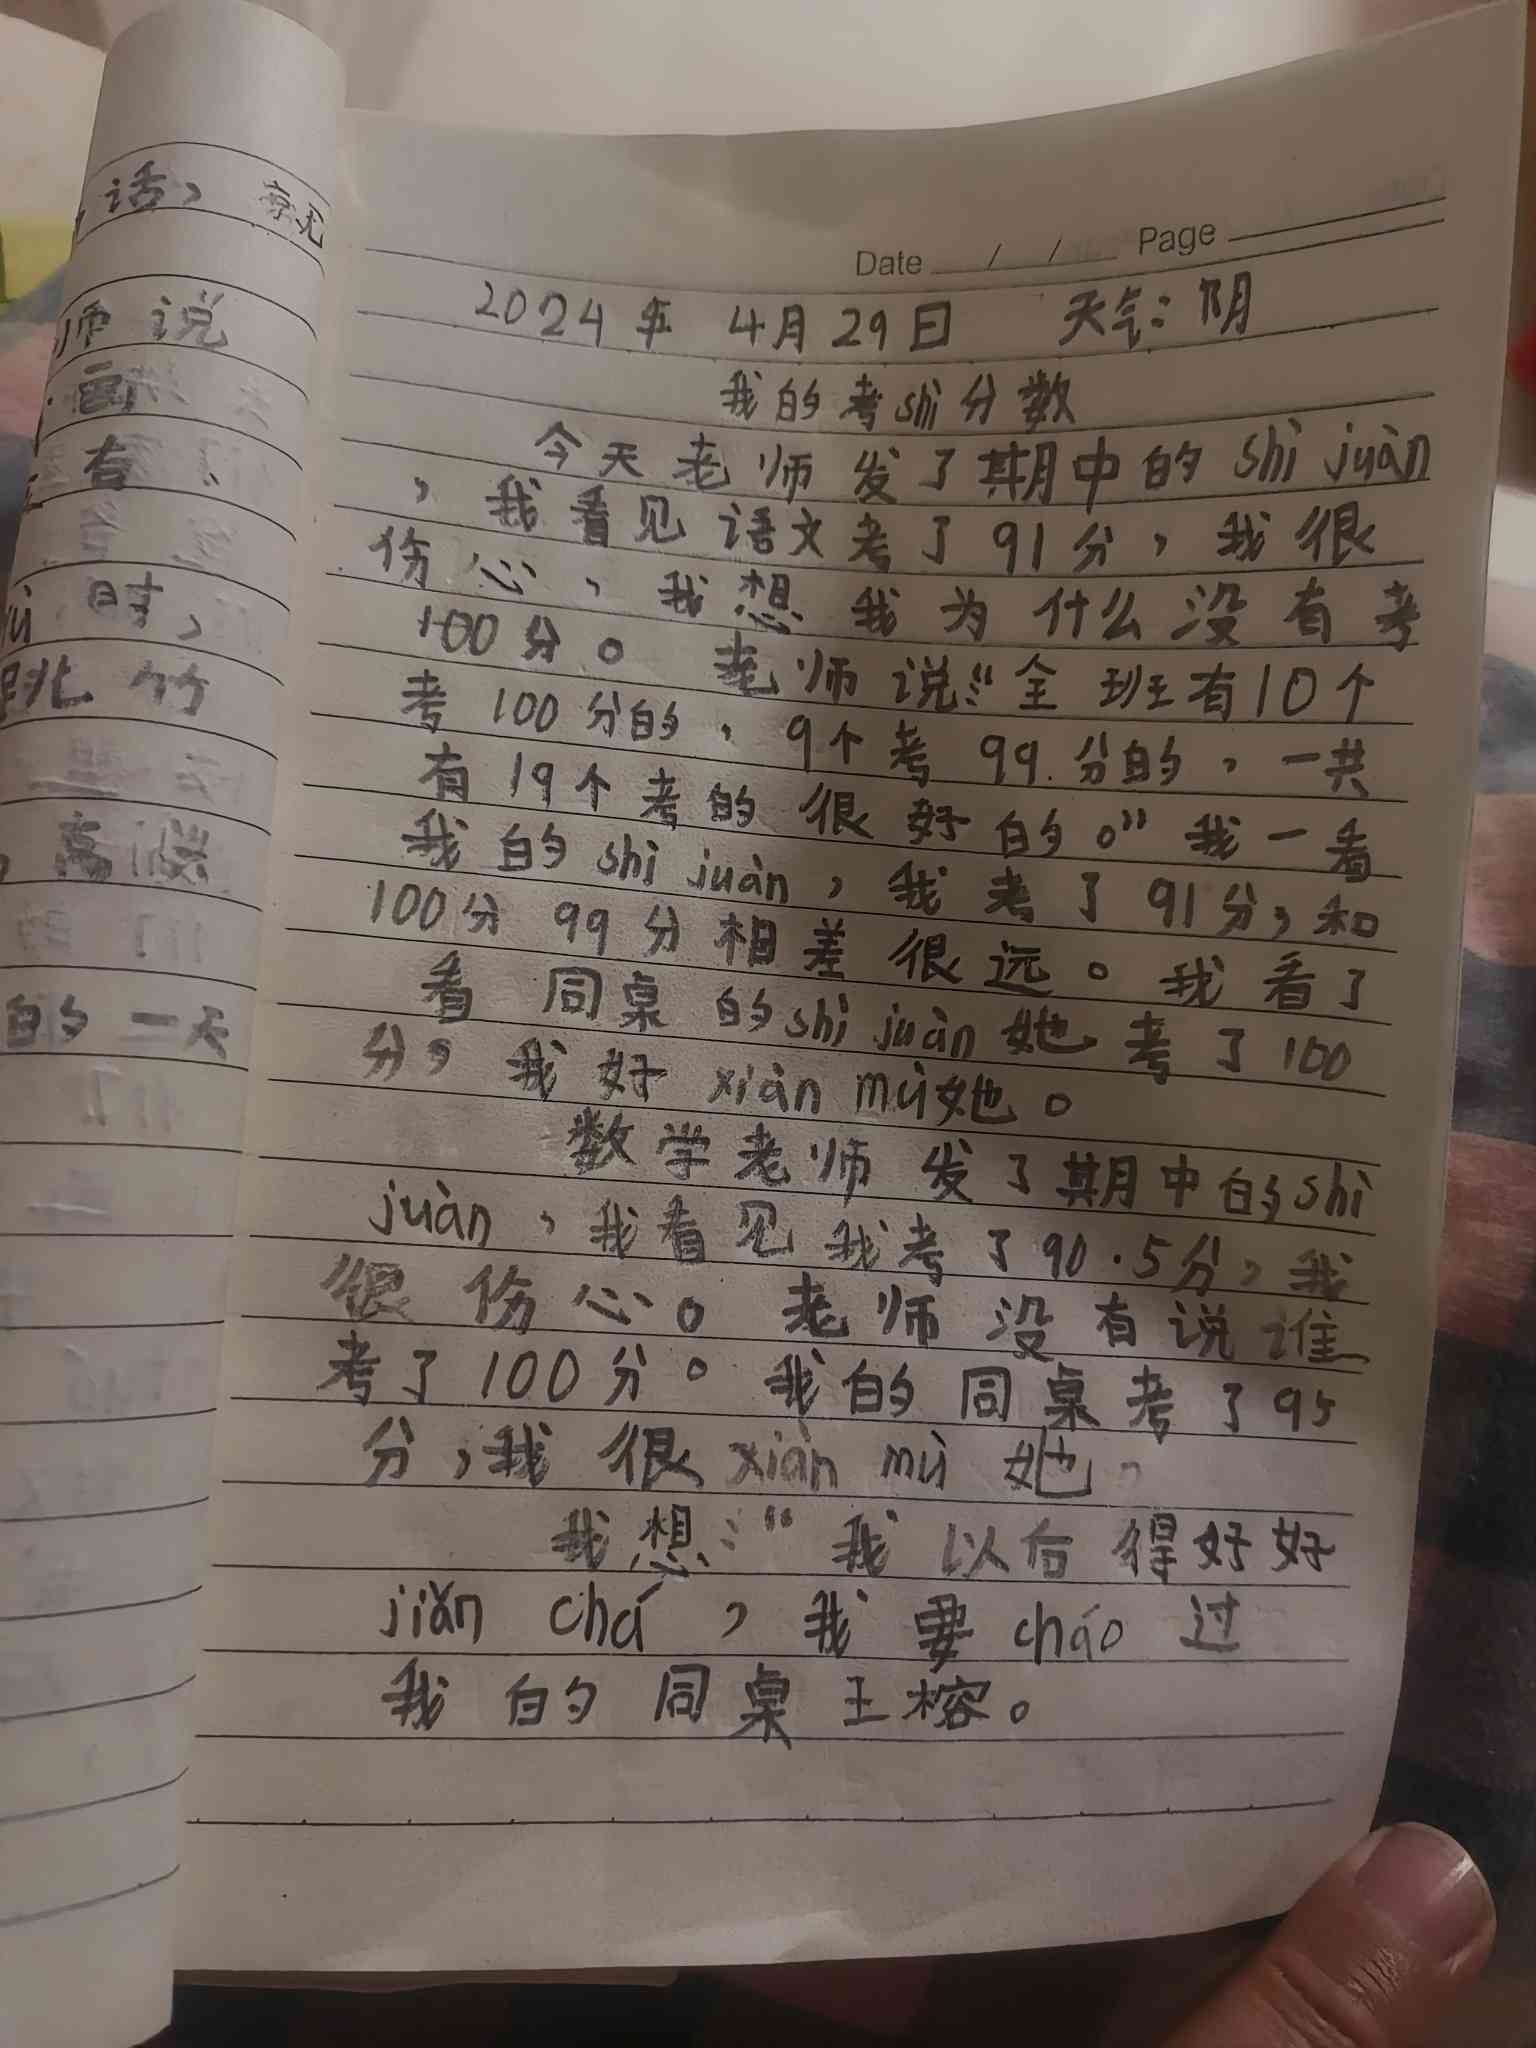 话，就
师说
有
时，
跳竹
高
的一天
Date / / Page
2024年 4月29日 天气：阴
我的考shì分数
今天老师发了期中的shì juàn
，我看见语文考了91分，我很
伤心，我想我为什么没有考
100分。老师说：“全班有10个
考100分的，9个考99分的，一共
有19个考的很好的。”我一看
我的shì juàn，我考了91分，和
100分99分相差很远。我看了
看同桌的shì juàn她考了100
分，我好xiàn mù她。
数学老师发了期中的shì
juàn，我看见我考了90.5分，我
很伤心。老师没有说谁
考了100分。我的同桌考了95
分，我很xiàn mù她。
我想：“我以后得好好
jiǎn chá，我要cháo过
我的同桌王榕。